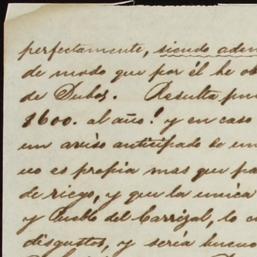 perfectamente, siendo adem
de modo que por él he ob
de Dubos. Resulta pu
$600. al año! y en caso
un aviso anticipado de un
no es propia mas que pa
de riego, y que la unica
y Pueblo del Carrizal, lo c
disgustos, y seria bueno